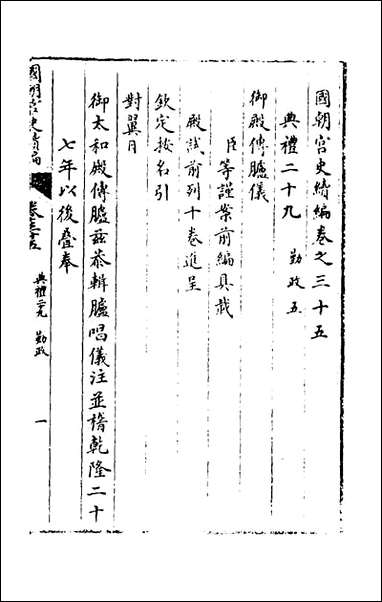 國朝宮史續編卷之三十五
典禮二十九 勤政五
御殿傳臚儀
臣等謹案前編具載
殿試前列十卷進呈
欽定按名引
對翼日
御太和殿傳臚茲恭輯臚唱儀注並稽乾隆二十
七年以後疊奉
國朝宮史續編 卷三十五 典禮二十九 勤政 一